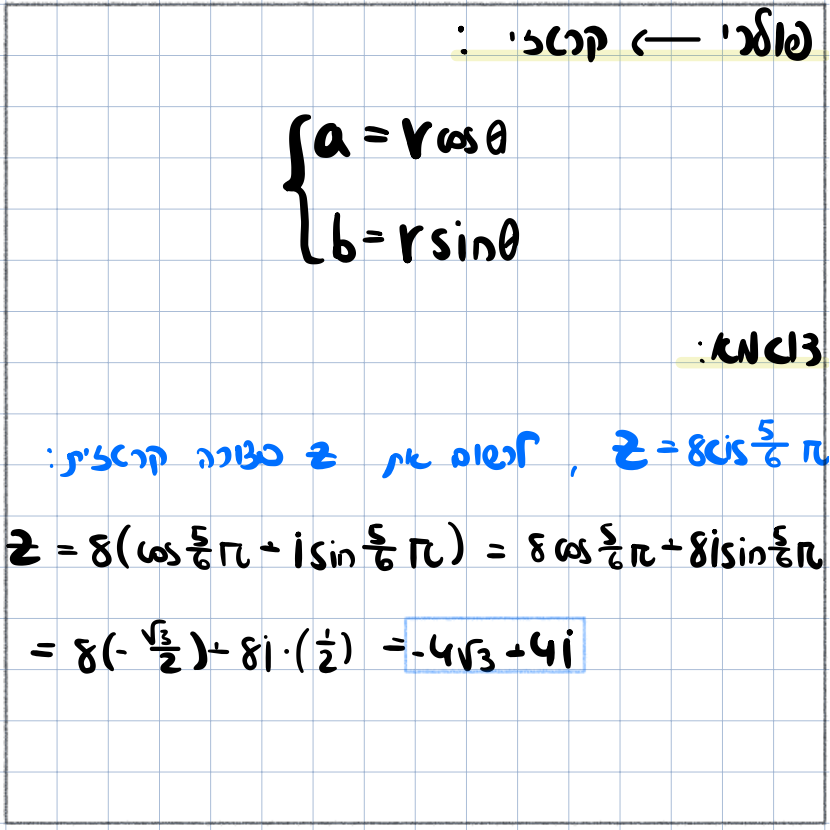 פולרי ← קרטזי :
{ a = r cos θ
b = r sin θ
דוגמא:
z = 8cis 5/6 π , לרשום את z בצורה קרטזית:
z = 8(cos 5/6 π + i sin 5/6 π) = 8 cos 5/6 π + 8i sin 5/6 π
= 8(- √3/2) + 8i · (1/2) = -4√3 + 4i